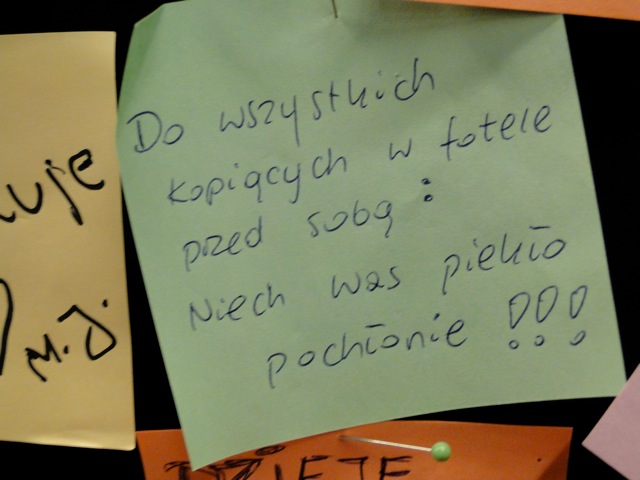 Do wszystkich
kopiących w fotele
przed sobą:
Niech was piekło
pochłonie !!!
M.J.
DZIEJE